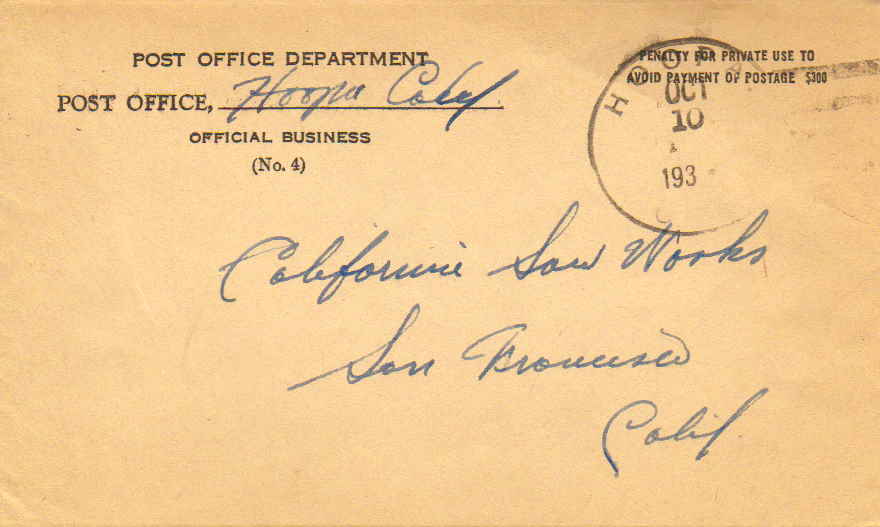 POST OFFICE DEPARTMENT
POST OFFICE, Hoopa Calif
OFFICIAL BUSINESS
(No. 4)
PENALTY FOR PRIVATE USE TO
AVOID PAYMENT OF POSTAGE $300
HOOPA
OCT
10
193
California Saw Works
San Francisco
Calif